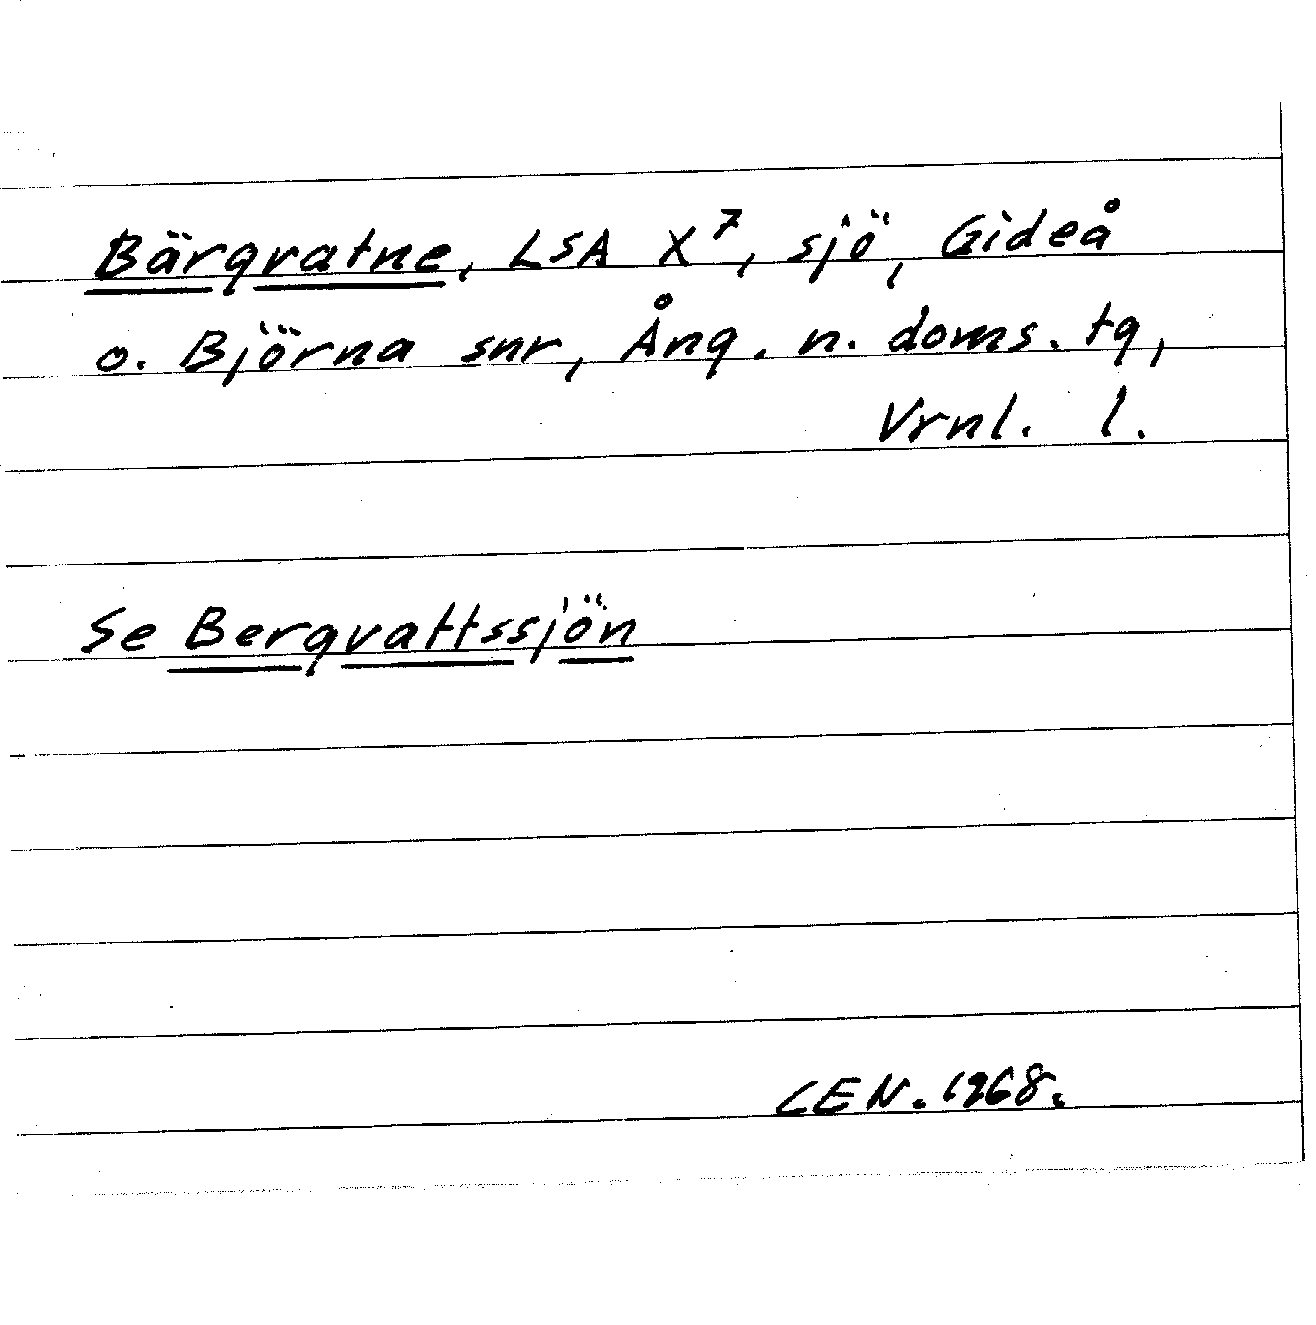 Bärgvatne, LSA X⁷, sjö, Gideå
o. Björna snr, Ång. n. doms. tg,
Vrnl. l.
Se Bergvattssjön
CEN. 1968.